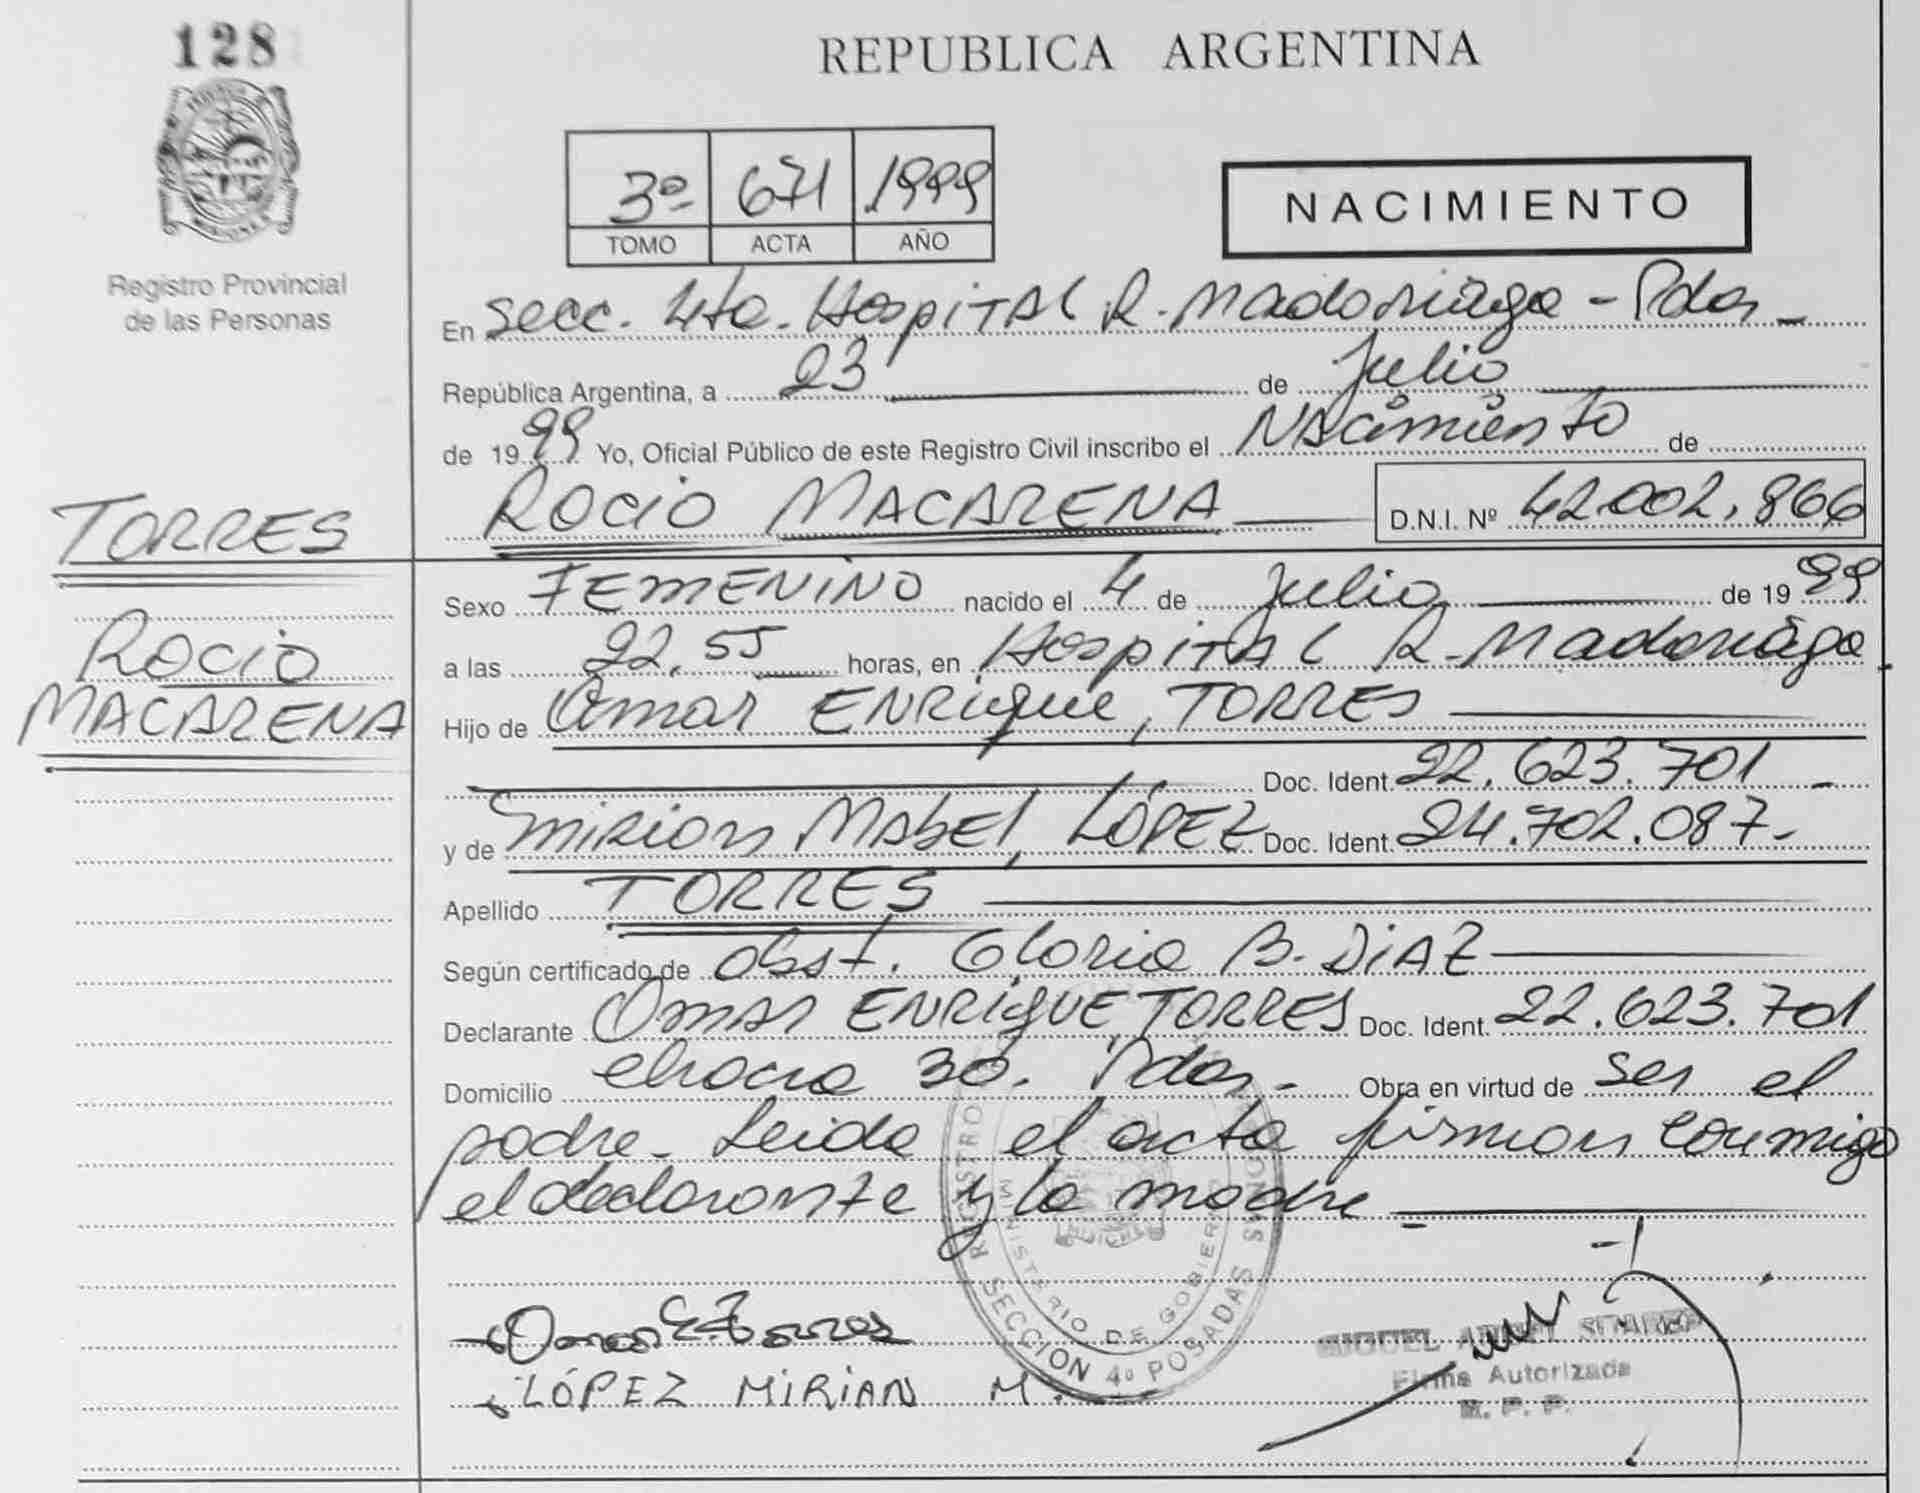 128
REPUBLICA ARGENTINA
3º 671 1999
TOMO ACTA AÑO
NACIMIENTO
Registro Provincial
de las Personas
En Secc. 4ta. Hospital R. Madariaga - Pdas -
República Argentina, a 23 de Julio
de 1999 Yo, Oficial Público de este Registro Civil inscribo el Nacimiento de
ROCIO MACARENA D.N.I. Nº 42.002.866
TORRES
ROCIO
MACARENA
Sexo FEMENINO nacido el 4 de Julio de 1999
a las 22,55 horas, en Hospital R. Madariaga.
Hijo de Omar ENRique, TORRES
Doc. Ident. 22.623.701 -
y de Mirian Mabel, LÓPEZ Doc. Ident. 24.702.087-
Apellido TORRES
Según certificado de Obst. Gloria B. DIAZ
Declarante Omar ENRIQUE TORRES Doc. Ident. 22.623.701
Domicilio chacra 30. Pdas - Obra en virtud de ser el
padre - Leida el acta firman conmigo
el declarante y la madre -
REGISTRO PERSONAS
MINISTERIO DE GOBIERNO
SECCION 4º POSADAS
Omar E. Torres
LÓPEZ MIRIAN M.
MIGUEL SUAREZ
Firma Autorizada
R. P. P.